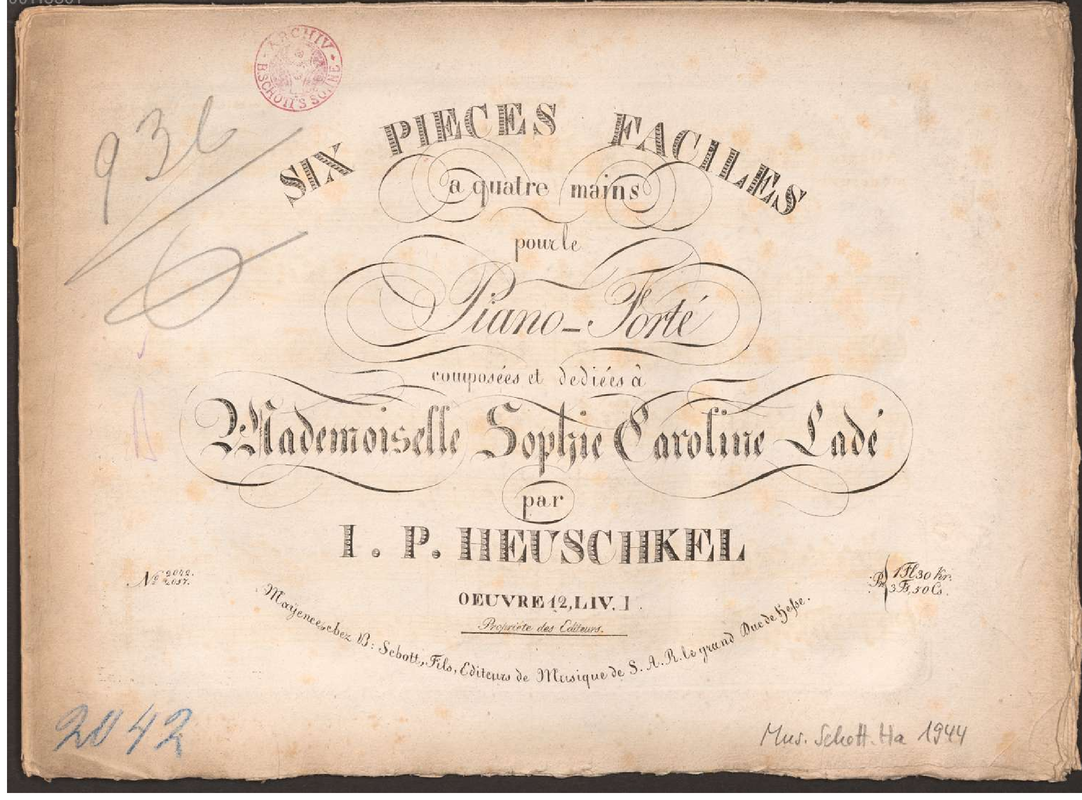 ARCHIV
B. SCHOTT'S SÖHNE
936
SIX PIECES FACILES
a quatre mains
pour le
Piano-Forté
composées et dediées à
Mademoiselle Sophie Caroline Ladé
par
I. P. HEUSCHKEL
Nº 2042.
2057.
Pr. 1 Fl 30 Kr.
3 Fs, 50 Cs.
OEUVRE 12, LIV. I.
Propriéte des Editeurs.
Mayence, chez B: Schott, Fils, Editeurs de Musique de S. A. R. le grand Duc de Hesse.
2042
Mus. Schott. Ha 1944